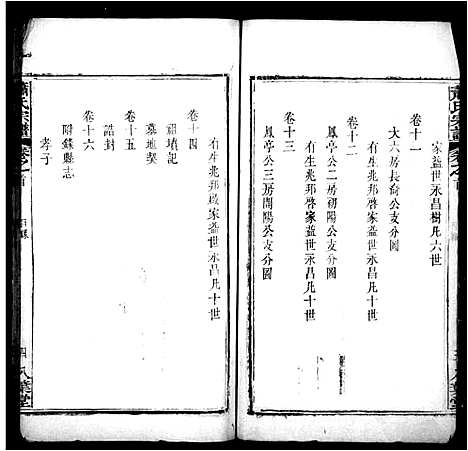 家益世永昌樹凡六世
卷十一
大六房長裔公支分圖
有生兆邦啓家益世永昌凡十世
卷十二
鳳亭公二房朝陽公支分圖
有生兆邦啓家益世永昌凡十世
卷十三
鳳亭公三房開陽公支分圖
有生兆邦啟家益世永昌凡十世
卷十四
祖墳記
墓地契
卷十五
誥封
卷十六
附錄縣志
孝子
氏宗譜
卷之首
目錄
四
八葉堂